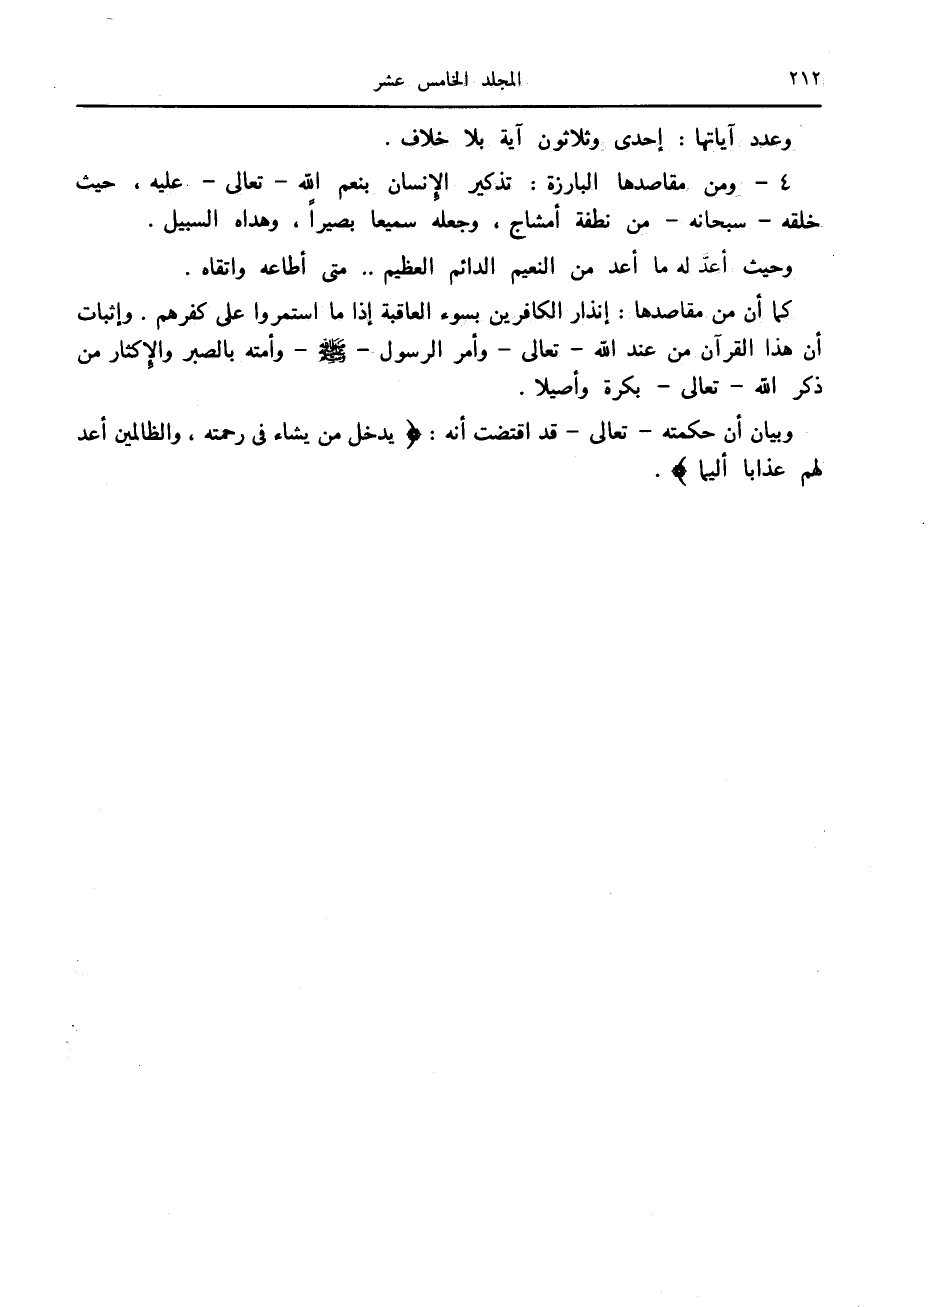 ٢١٢ المجلد الخامس عشر
وعدد آياتها : إحدى وثلاثون آية بلا خلاف .
٤ - ومن مقاصدها البارزة : تذكير الإنسان بنعم الله - تعالى - عليه ، حيث
خلقه - سبحانه - من نطفة أمشاج ، وجعله سميعا بصيراً ، وهداه السبيل .
وحيث أعدَّ له ما أعد من النعيم الدائم العظيم .. متى أطاعه واتقاه .
كما أن من مقاصدها : إنذار الكافرين بسوء العاقبة إذا ما استمروا على كفرهم . وإثبات
أن هذا القرآن من عند الله - تعالى - وأمر الرسول - ﷺ - وأمته بالصبر والإكثار من
ذكر الله - تعالى - بكرة وأصيلا .
وبيان أن حكمته - تعالى - قد اقتضت أنه : ﴿ يدخل من يشاء فى رحمته ، والظالمين أعد
لهم عذابا أليما ﴾ .